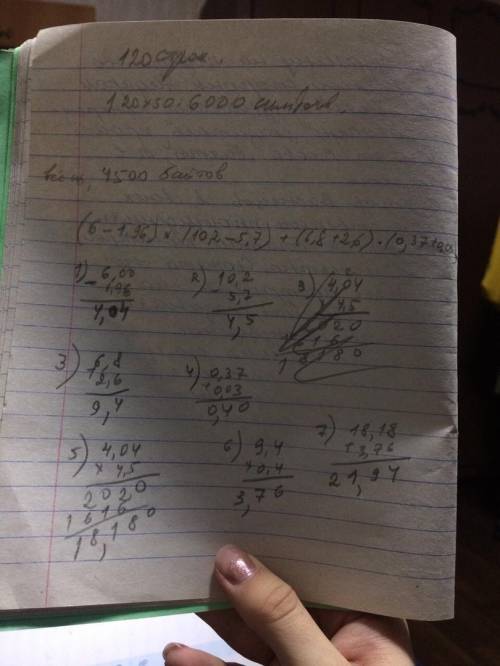 120 строк.
120×50=6000 символ.
4500 байтов
(6-1,96)×(10,2-5,7)+(6,8+2,6)·(0,37+0,03)
1) 6,00
- 1,96
4,04
2) 10,2
- 5,7
4,5
3) 6,8
+ 2,6
9,4
4) 0,37
+ 0,03
0,40
5) 4,04
× 4,5
2020
1616
18,180
6) 9,4
× 0,4
3,76
7) 18,18
+ 3,76
21,94